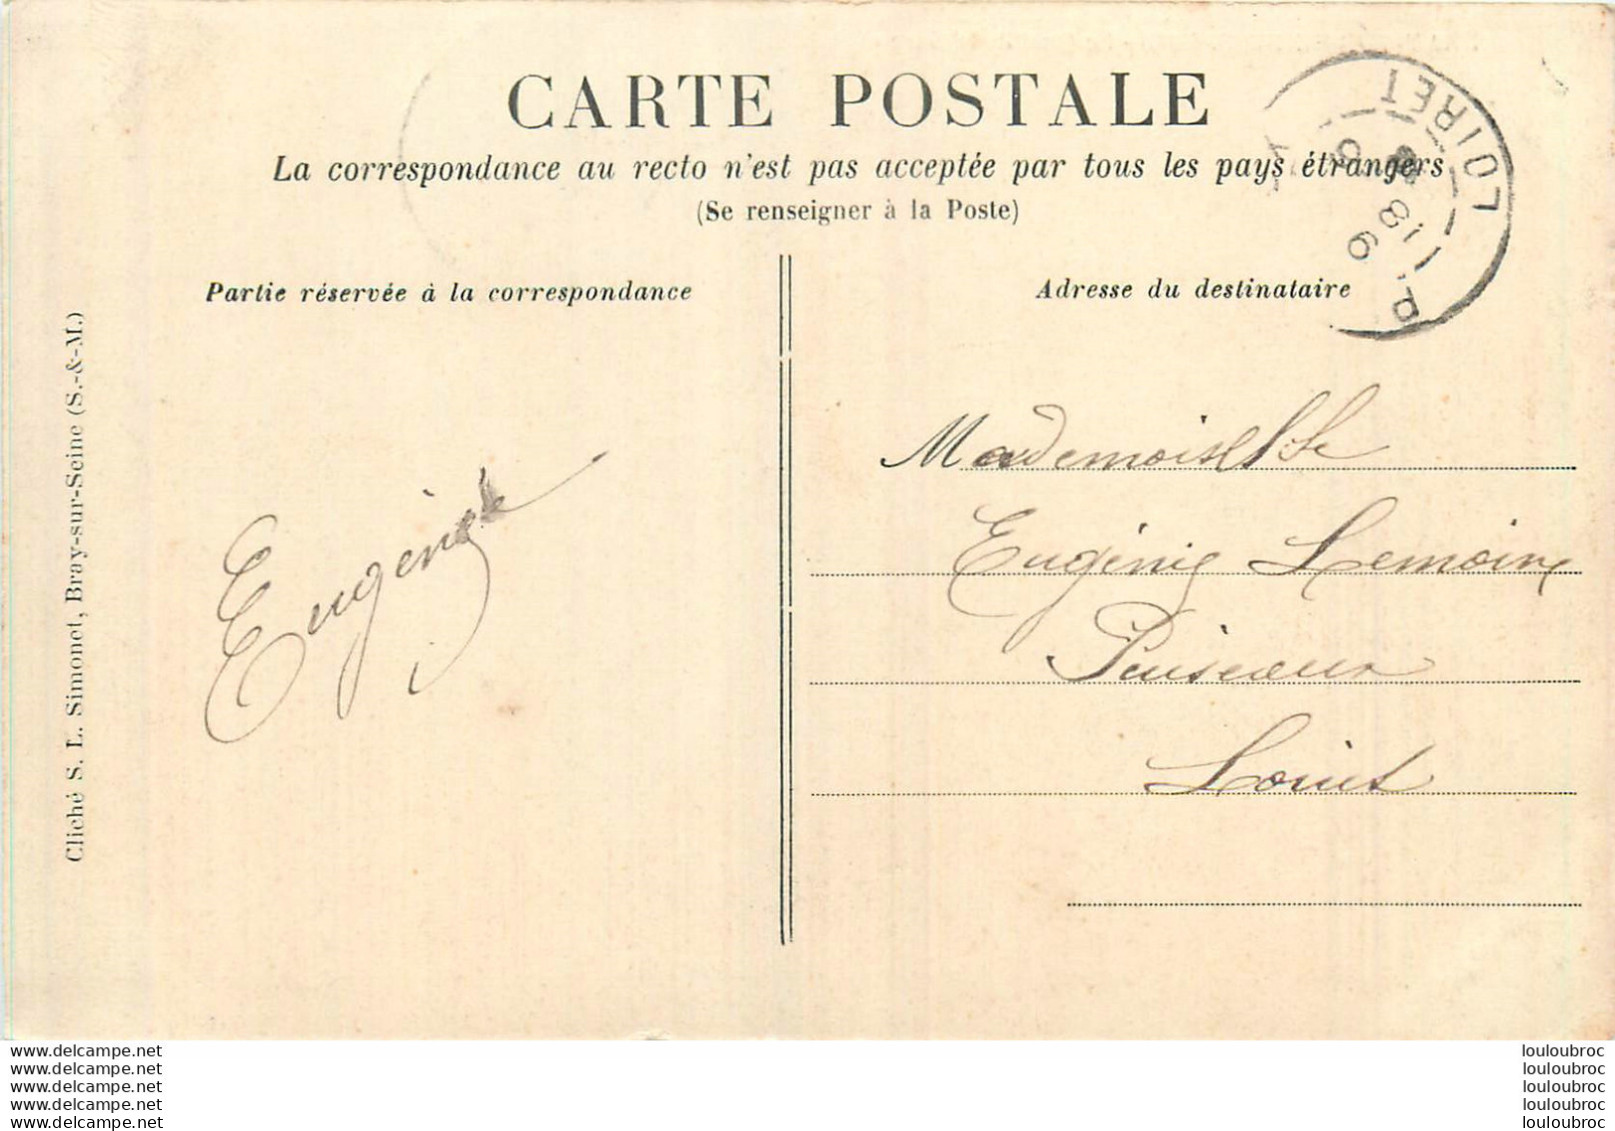 CARTE POSTALE
La correspondance au recto n'est pas acceptée par tous les pays étrangers
(Se renseigner à la Poste)
Partie réservée à la correspondance
Adresse du destinataire
LOIRET
Cliché S. L. Simonet, Bray-sur-Seine (S.-&-M.)
Eugénie
Mademoiselle
Eugénie Lemoine
Puiseaux
Loiret
www.delcampe.net
www.delcampe.net
www.delcampe.net
www.delcampe.net
www.delcampe.net
louloubroc
louloubroc
louloubroc
louloubroc
louloubroc